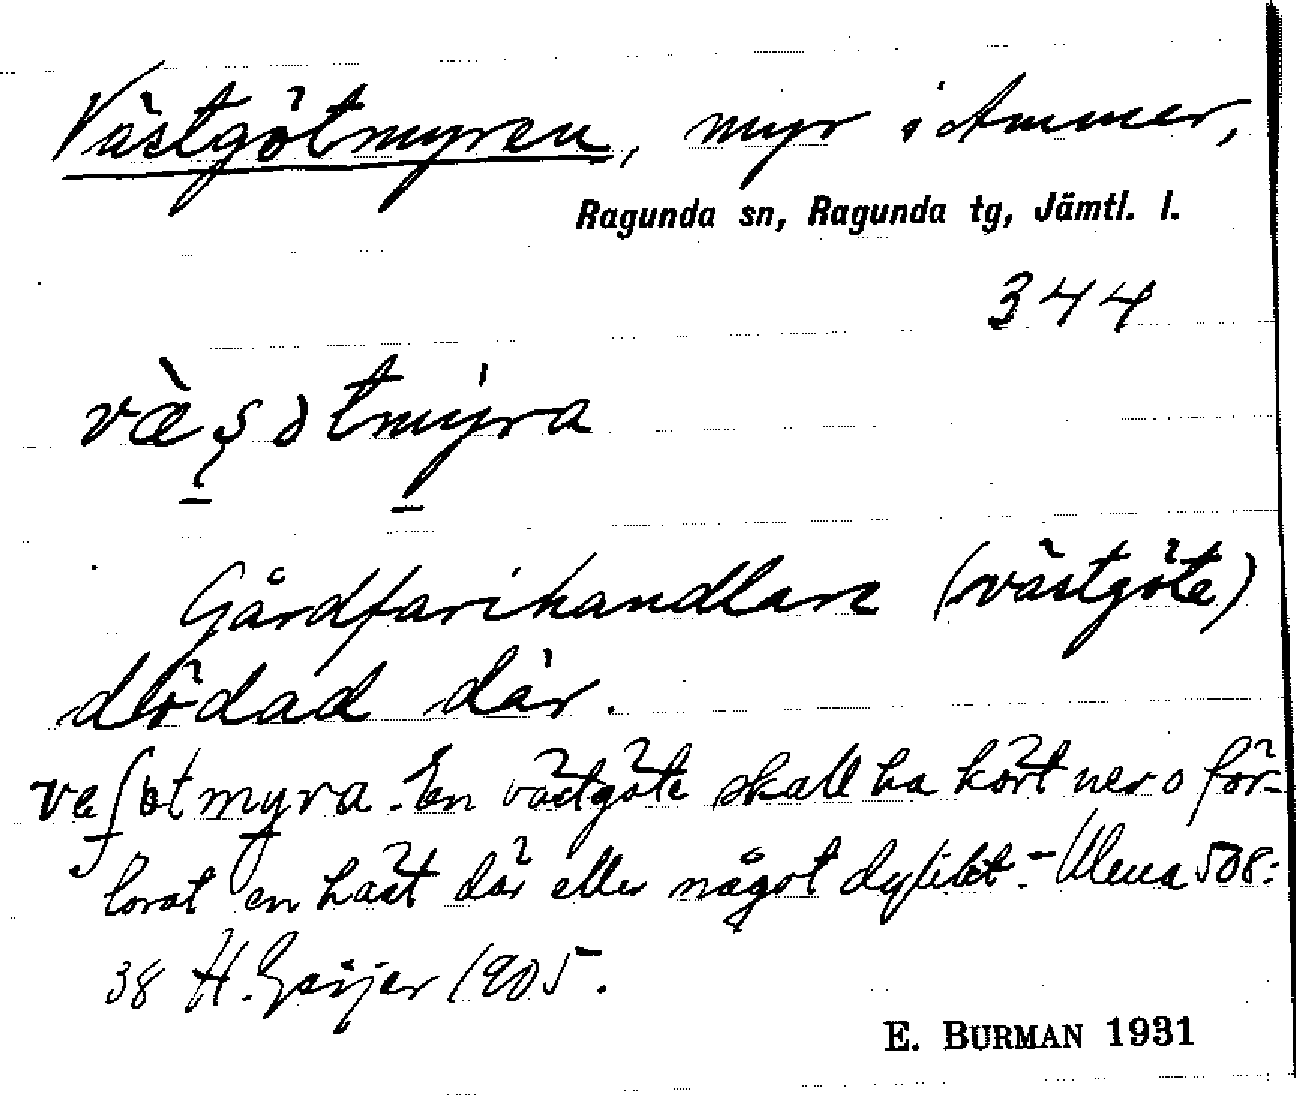 Västgötmyren, myr i Ammer,
Ragunda sn, Ragunda tg, Jämtl. l.
344
Gårdfarihandlare (västgöte)
dödad där.
En västgöte skall ha kört ner o för-
lorat en häst där eller något dylikt. - Ulma 508:
38 H. Geijer 1905.
E. BURMAN 1931